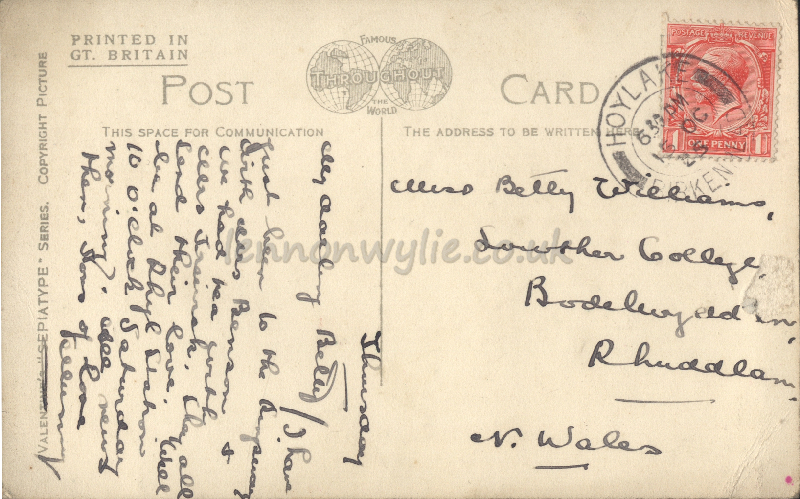 PRINTED IN
GT. BRITAIN
POST
FAMOUS
THROUGHOUT
THE
WORLD
CARD
THIS SPACE FOR COMMUNICATION
THE ADDRESS TO BE WRITTEN HERE
VALENTINE'S "SEPIATYPE" SERIES. COPYRIGHT PICTURE
POSTAGE REVENUE
1 ONE PENNY 1
HOYLAKE
6.30 AM
OC
BIRKEN
Thursday
My darling Betty / I have
just been to the
with Miss Benson &
we had tea with
Miss They all
send their love. Will
be at Rhyl Station
10 o'clock Saturday
morning. All news
then, Tons of love
Mummy
Miss Betty Williams,
Lowther College,
Bodelwyddan,
Rhuddlan
N. Wales
lennonwylie.co.uk